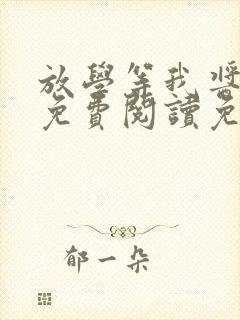 放學等我 獎
免費閱讀免
郁一朵